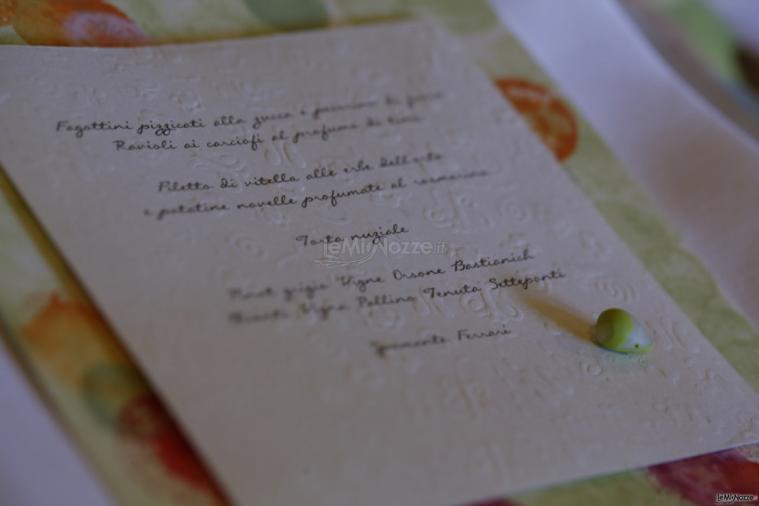 Fagottini pizzicati alla zucca e pecorino di fossa
Ravioli ai carciofi al profumo di timo
Filetto di vitella alle erbe dell'orto
e patatine novelle profumate al rosmarino
Torta nuziale
LeMieNozze.it
Pinot grigio Vigne Orsone Bastianich
Chianti Vigna Pallino Tenuta Setteponti
Spumante Ferrari
LeMieNozze.it